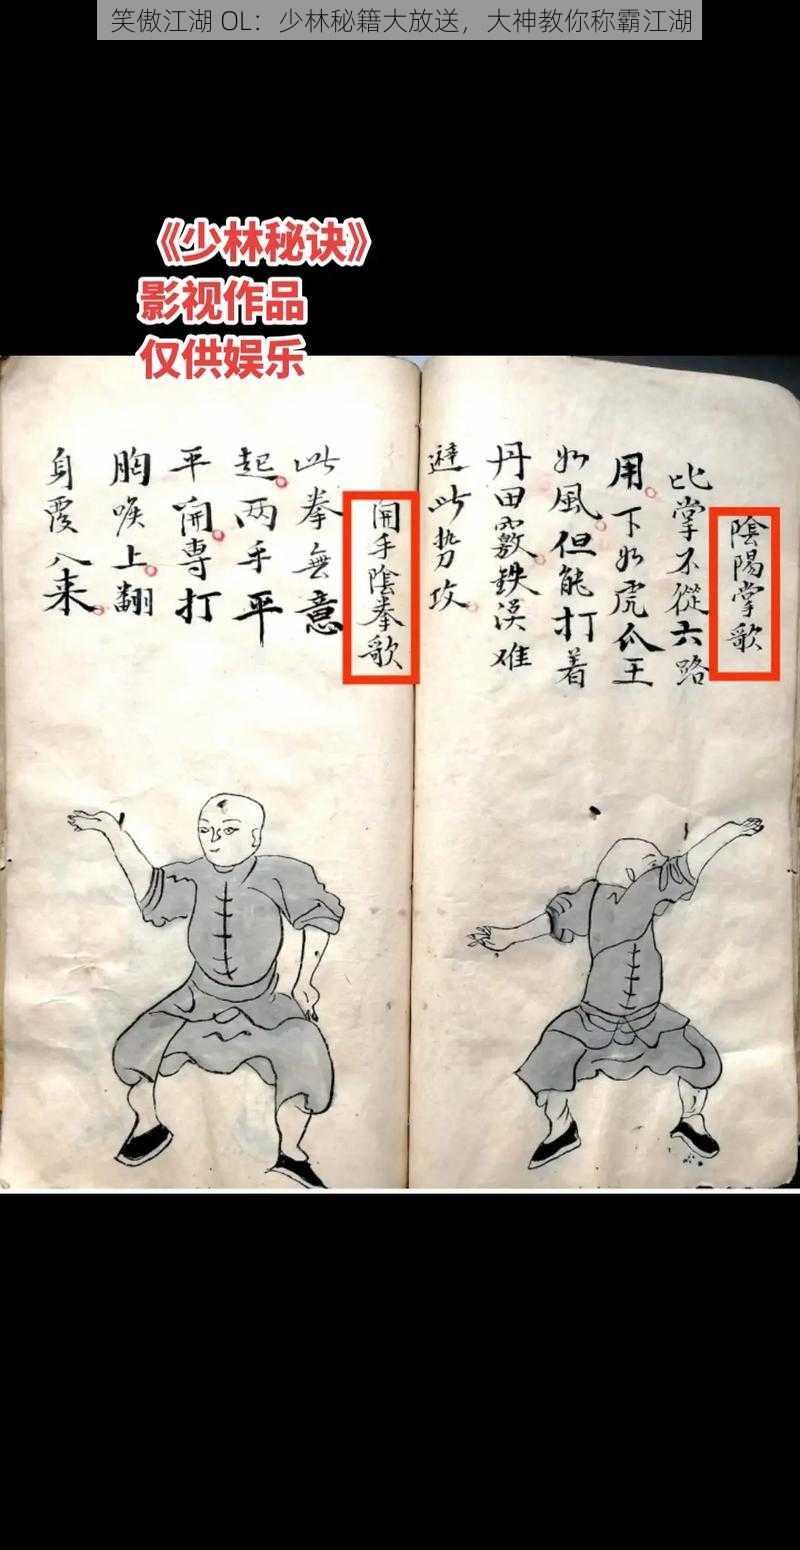 笑傲江湖 OL：少林秘籍大放送，大神教你称霸江湖
《少林秘诀》
影视作品
仅供娱乐
陰陽掌歌
此掌不從六路
用下如虎爪王
如風但能打着
丹田竅鉄漢难
避此势攻
開手陰拳歌
此拳無意
起两手平
平開專打
胸喉上翻
身覆八来